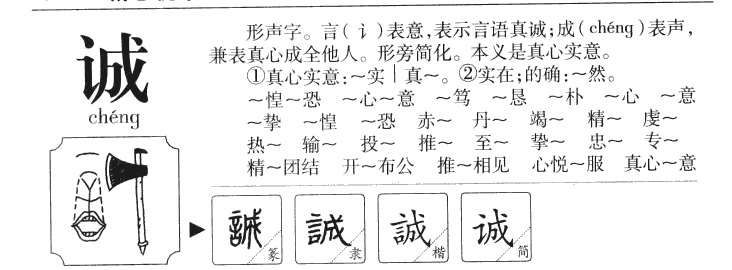 形声字。言(讠)表意,表示言语真诚;成(chéng)表声,
兼表真心成全他人。形旁简化。本义是真心实意。
①真心实意:～实｜真～。②实在;的确:～然。
～惶～恐 ～心～意 ～笃 ～恳 ～朴 ～心 ～意
～挚 ～惶 ～恐 赤～ 丹～ 竭～ 精～ 虔～
热～ 输～ 投～ 推～ 至～ 挚～ 忠～ 专～
精～团结 开～布公 推～相见 心悦～服 真心～意
诚
chéng
誠 篆
誠 隶
誠 楷
诚 简